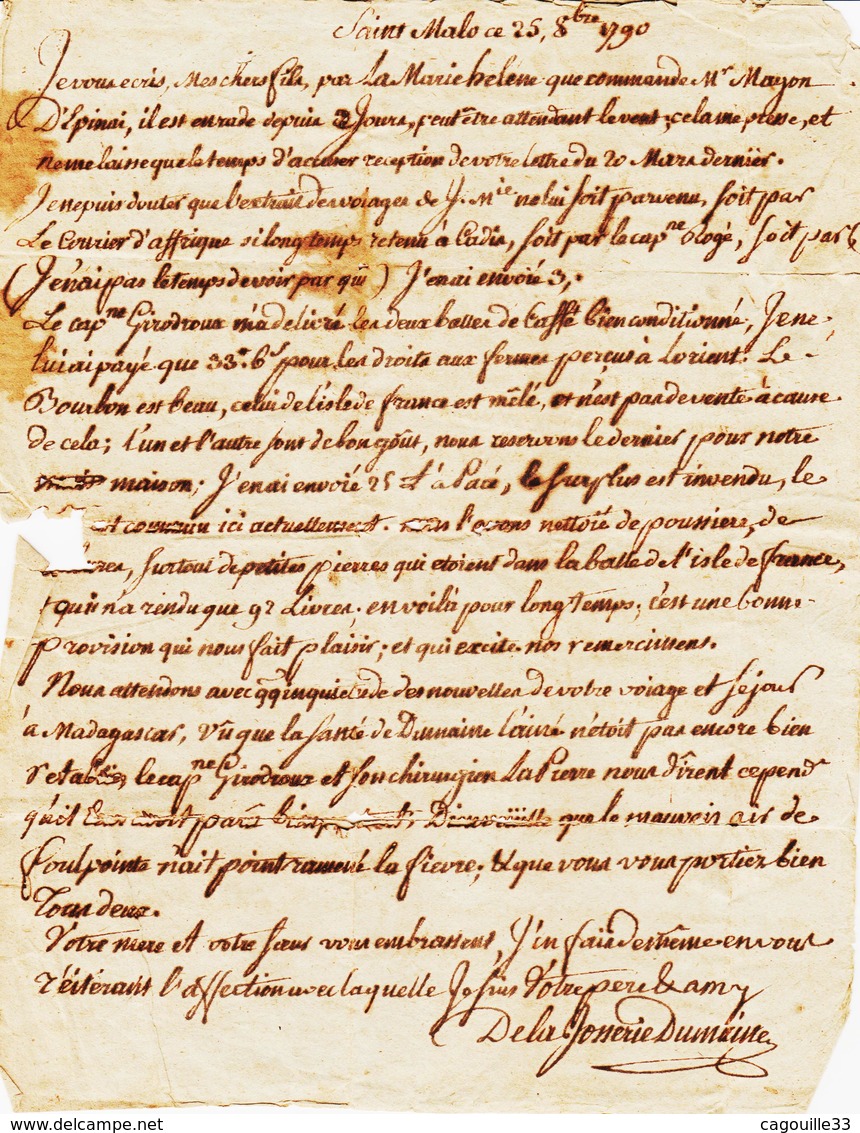 Saint Malo ce 25, 8bre 1790
Je vous ecris, Mes chers fils, par La Marie helene que commande Mr Magon
D'Epinai, il est en rade depuis 2 Jours, peut être attendant le vent; cela me presse, et
ne me laisse que le temps d'accuser reception de votre lettre du 20 Mars dernier.
Je ne puis douter que l'extrait des voiages de J. Mie ne lui soit parvenu, soit par
Le Courier d'affrique si long temps retenu à Cadix, soit par le capne Rogé, soit par
(Je n'ai pas le temps de voir par qui) J'en ai envoié 3,
Le capne Girodroux m'a delivré les deux balles de Caffé bien conditionné, Je ne
lui ai payé que 33. 6s pour les droits aux fermes perçus à Lorient. Le
Bourbon est beau, celui de l'isle de france est mêlé, et n'est pas de vente à cause
de cela; l'un et l'autre sont de bon goût, nous reservons le dernier pour notre
maison; J'en ai envoié 25 à Pacé, le surplus est invendu, le
commun ici actuellement. nous l'avons nettoié de poussiere, de
surtout de petites pierres qui etoient dans la balle de l'isle de france,
qui n'a rendu que 92 Livres. en voila pour long temps; c'est une bonne
provision qui nous fait plaisir; et qui excite nos remercimens.
Nous attendons avec qq inquietude des nouvelles de votre voiage et sejour
à Madagascar, Vû que la santé de Dumaine l'ainé n'etoit pas encore bien
retablie, le capne Girodroux et son chirurgien La Pierre nous dîrent cepend
qu'il que le mauvais air de
foulpointe n'ait point ramené la fievre; & que vous vous portiez bien
Tous deux.
Votre mere et votre sœur vous embrassent, J'en fais de même en vous
réitérant l'affection avec laquelle Je suis Votre pere & amy
De la Josserie Dumaine
cagouille33